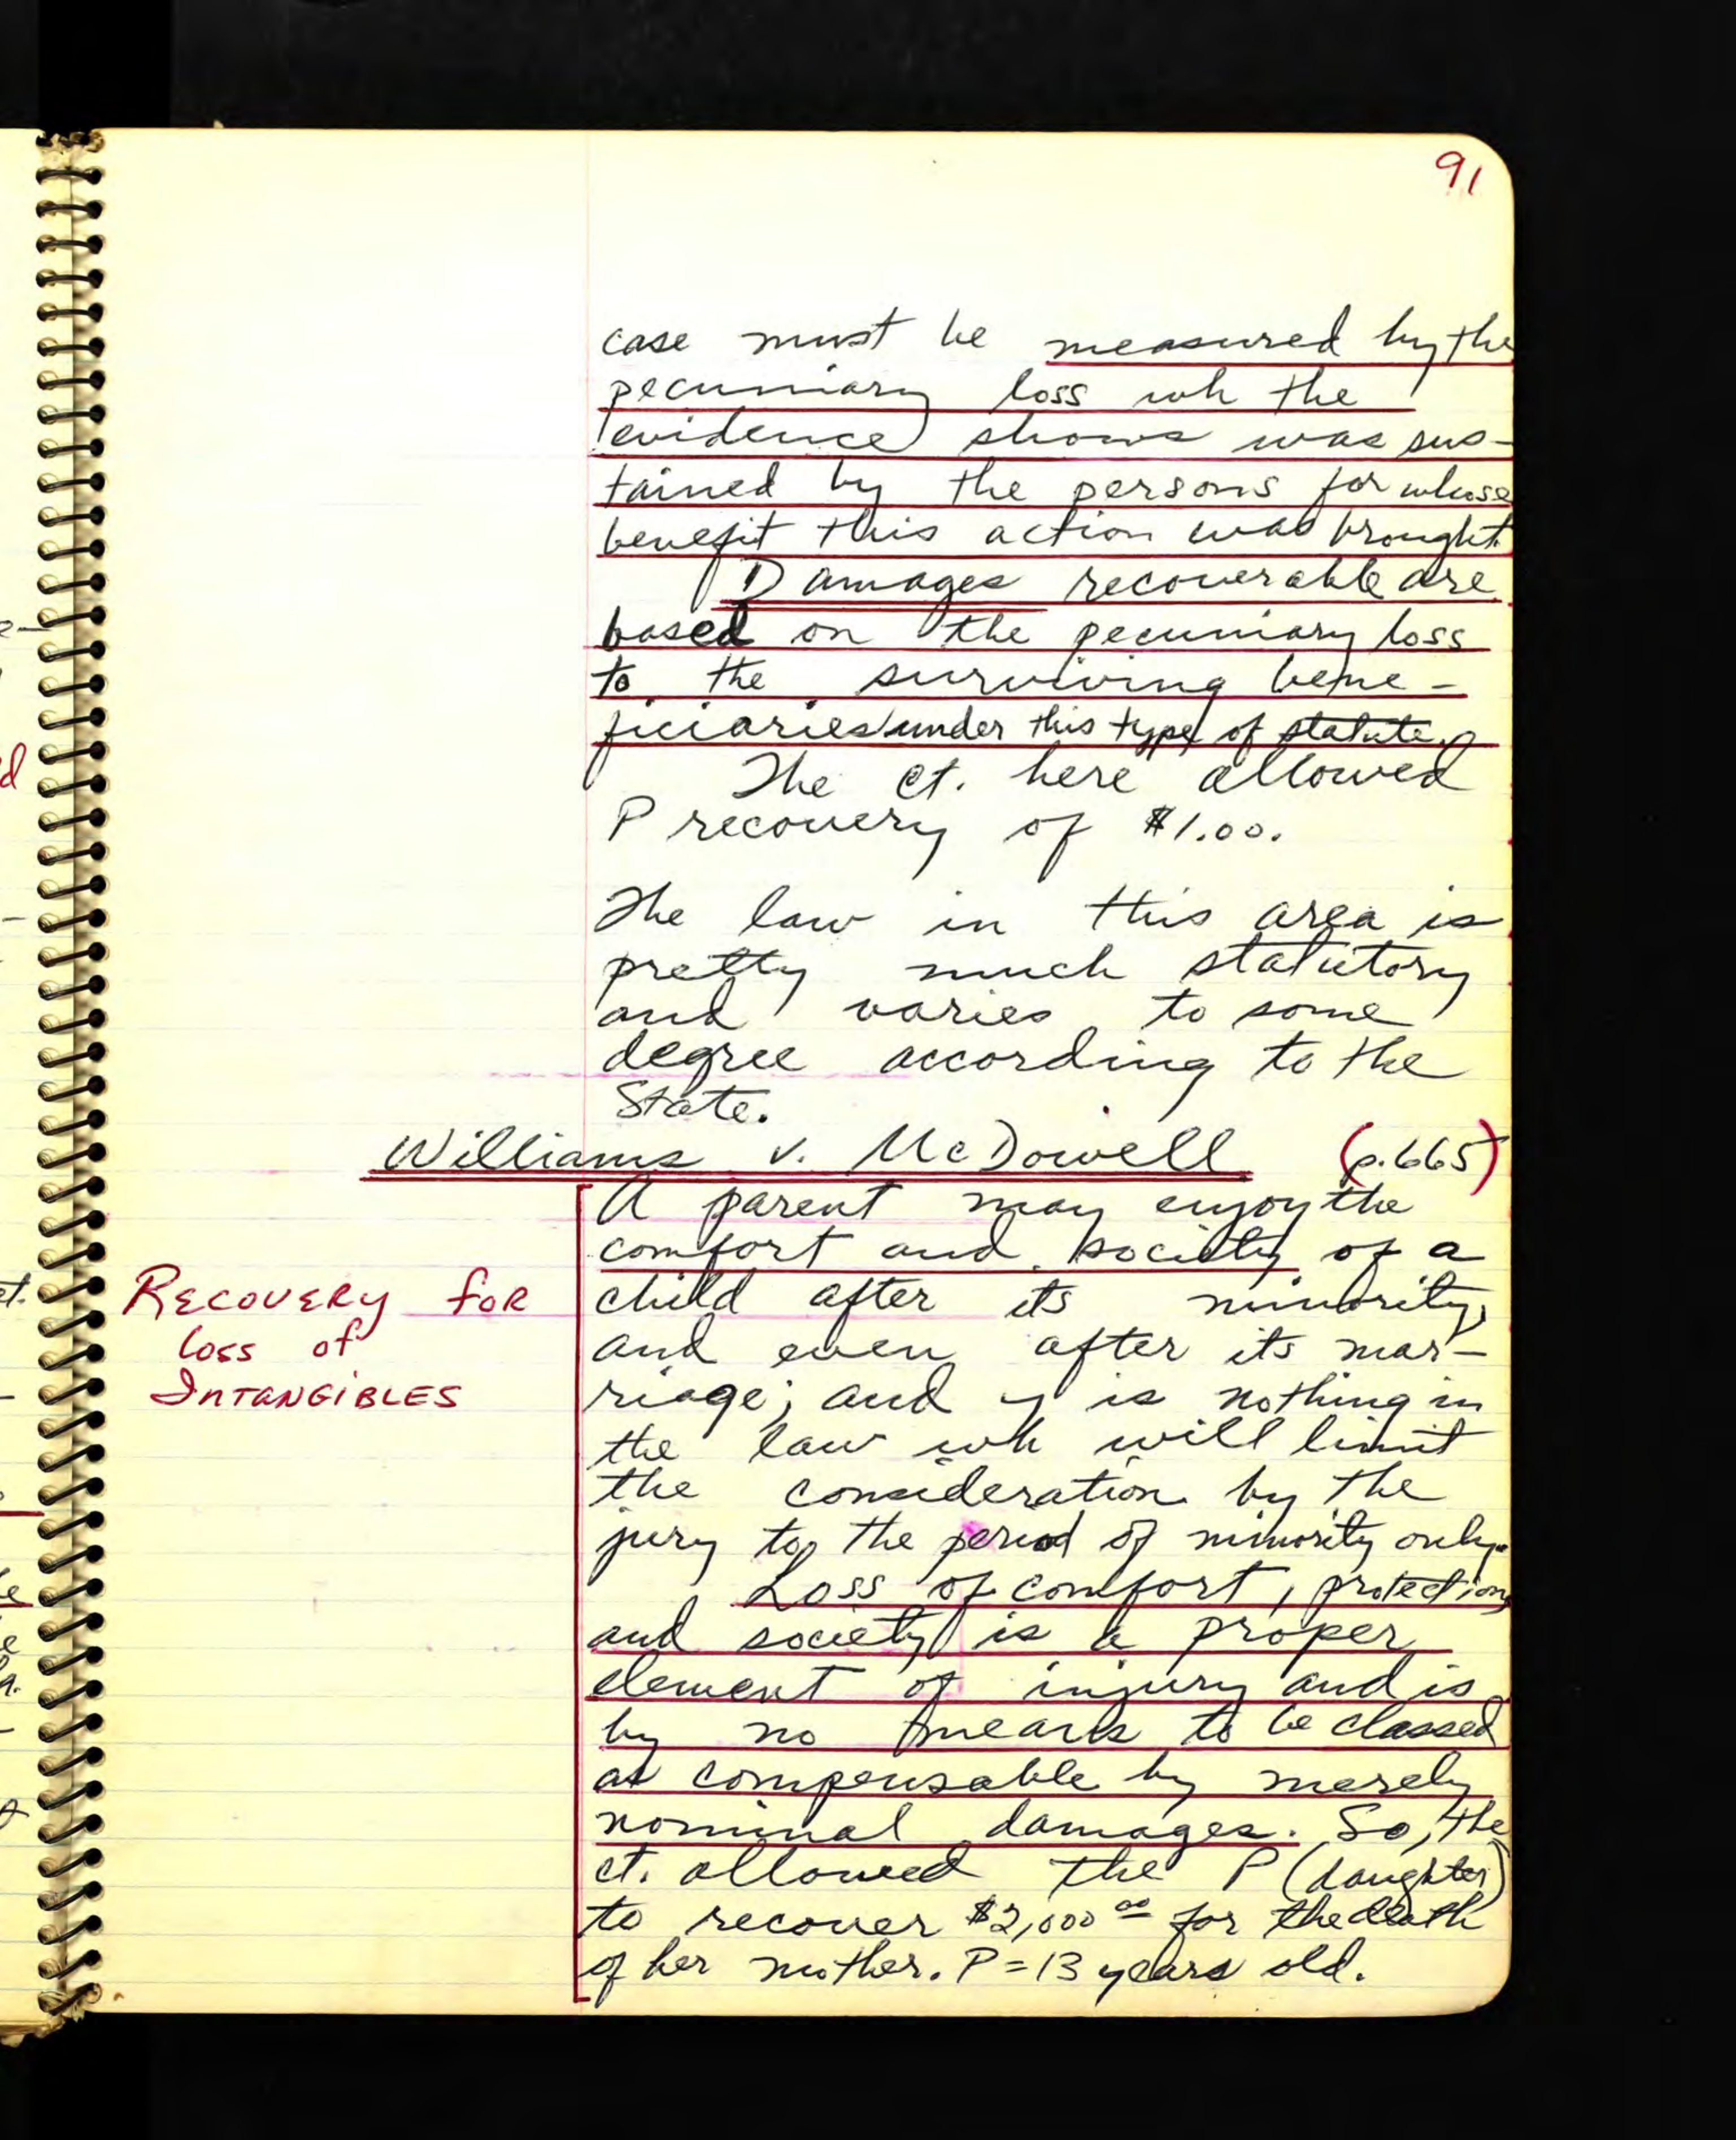 91
case must be measured by the
pecuniary loss wh the
evidence shows was sus-
tained by the persons for whose
benefit this action was brought.
Damages recoverable are
based on the pecuniary loss
to the surviving bene-
ficiaries under this type of statute.
The ct. here allowed
P recovery of $1.00.
The law in this area is
pretty much statutory
and varies to some
degree according to the
State.
Williams v. McDowell (p.665)
A parent may enjoy the
comfort and society of a
child after its minority,
and even after its mar-
riage; and y is nothing in
the law wh will limit
the consideration by the
jury to the period of minority only.
Loss of comfort, protection,
and society is a proper
element of injury and is
by no means to be classed
as compensable by merely
nominal damages. So, the
ct. allowed the P (daughter)
to recover $2,000 00 for the death
of her mother. P = 13 years old.
RECOVERY FOR
loss of
INTANGIBLES